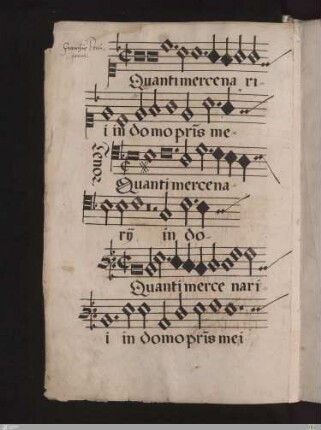 Quanti mercena ri
i in domo pris me
Tenor
Quanti mercena-
rij in do-
Quanti merce nari-
i in domo pris mei